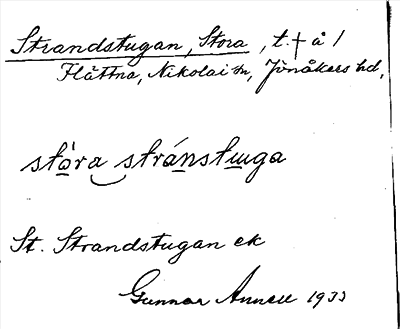 Strandstugan, Stora, t. † å /
Flättna, Nikolai sn, Jönåkers hd,
stòra stránstuga
St. Strandstugan ek
Gunnar Annell 1933